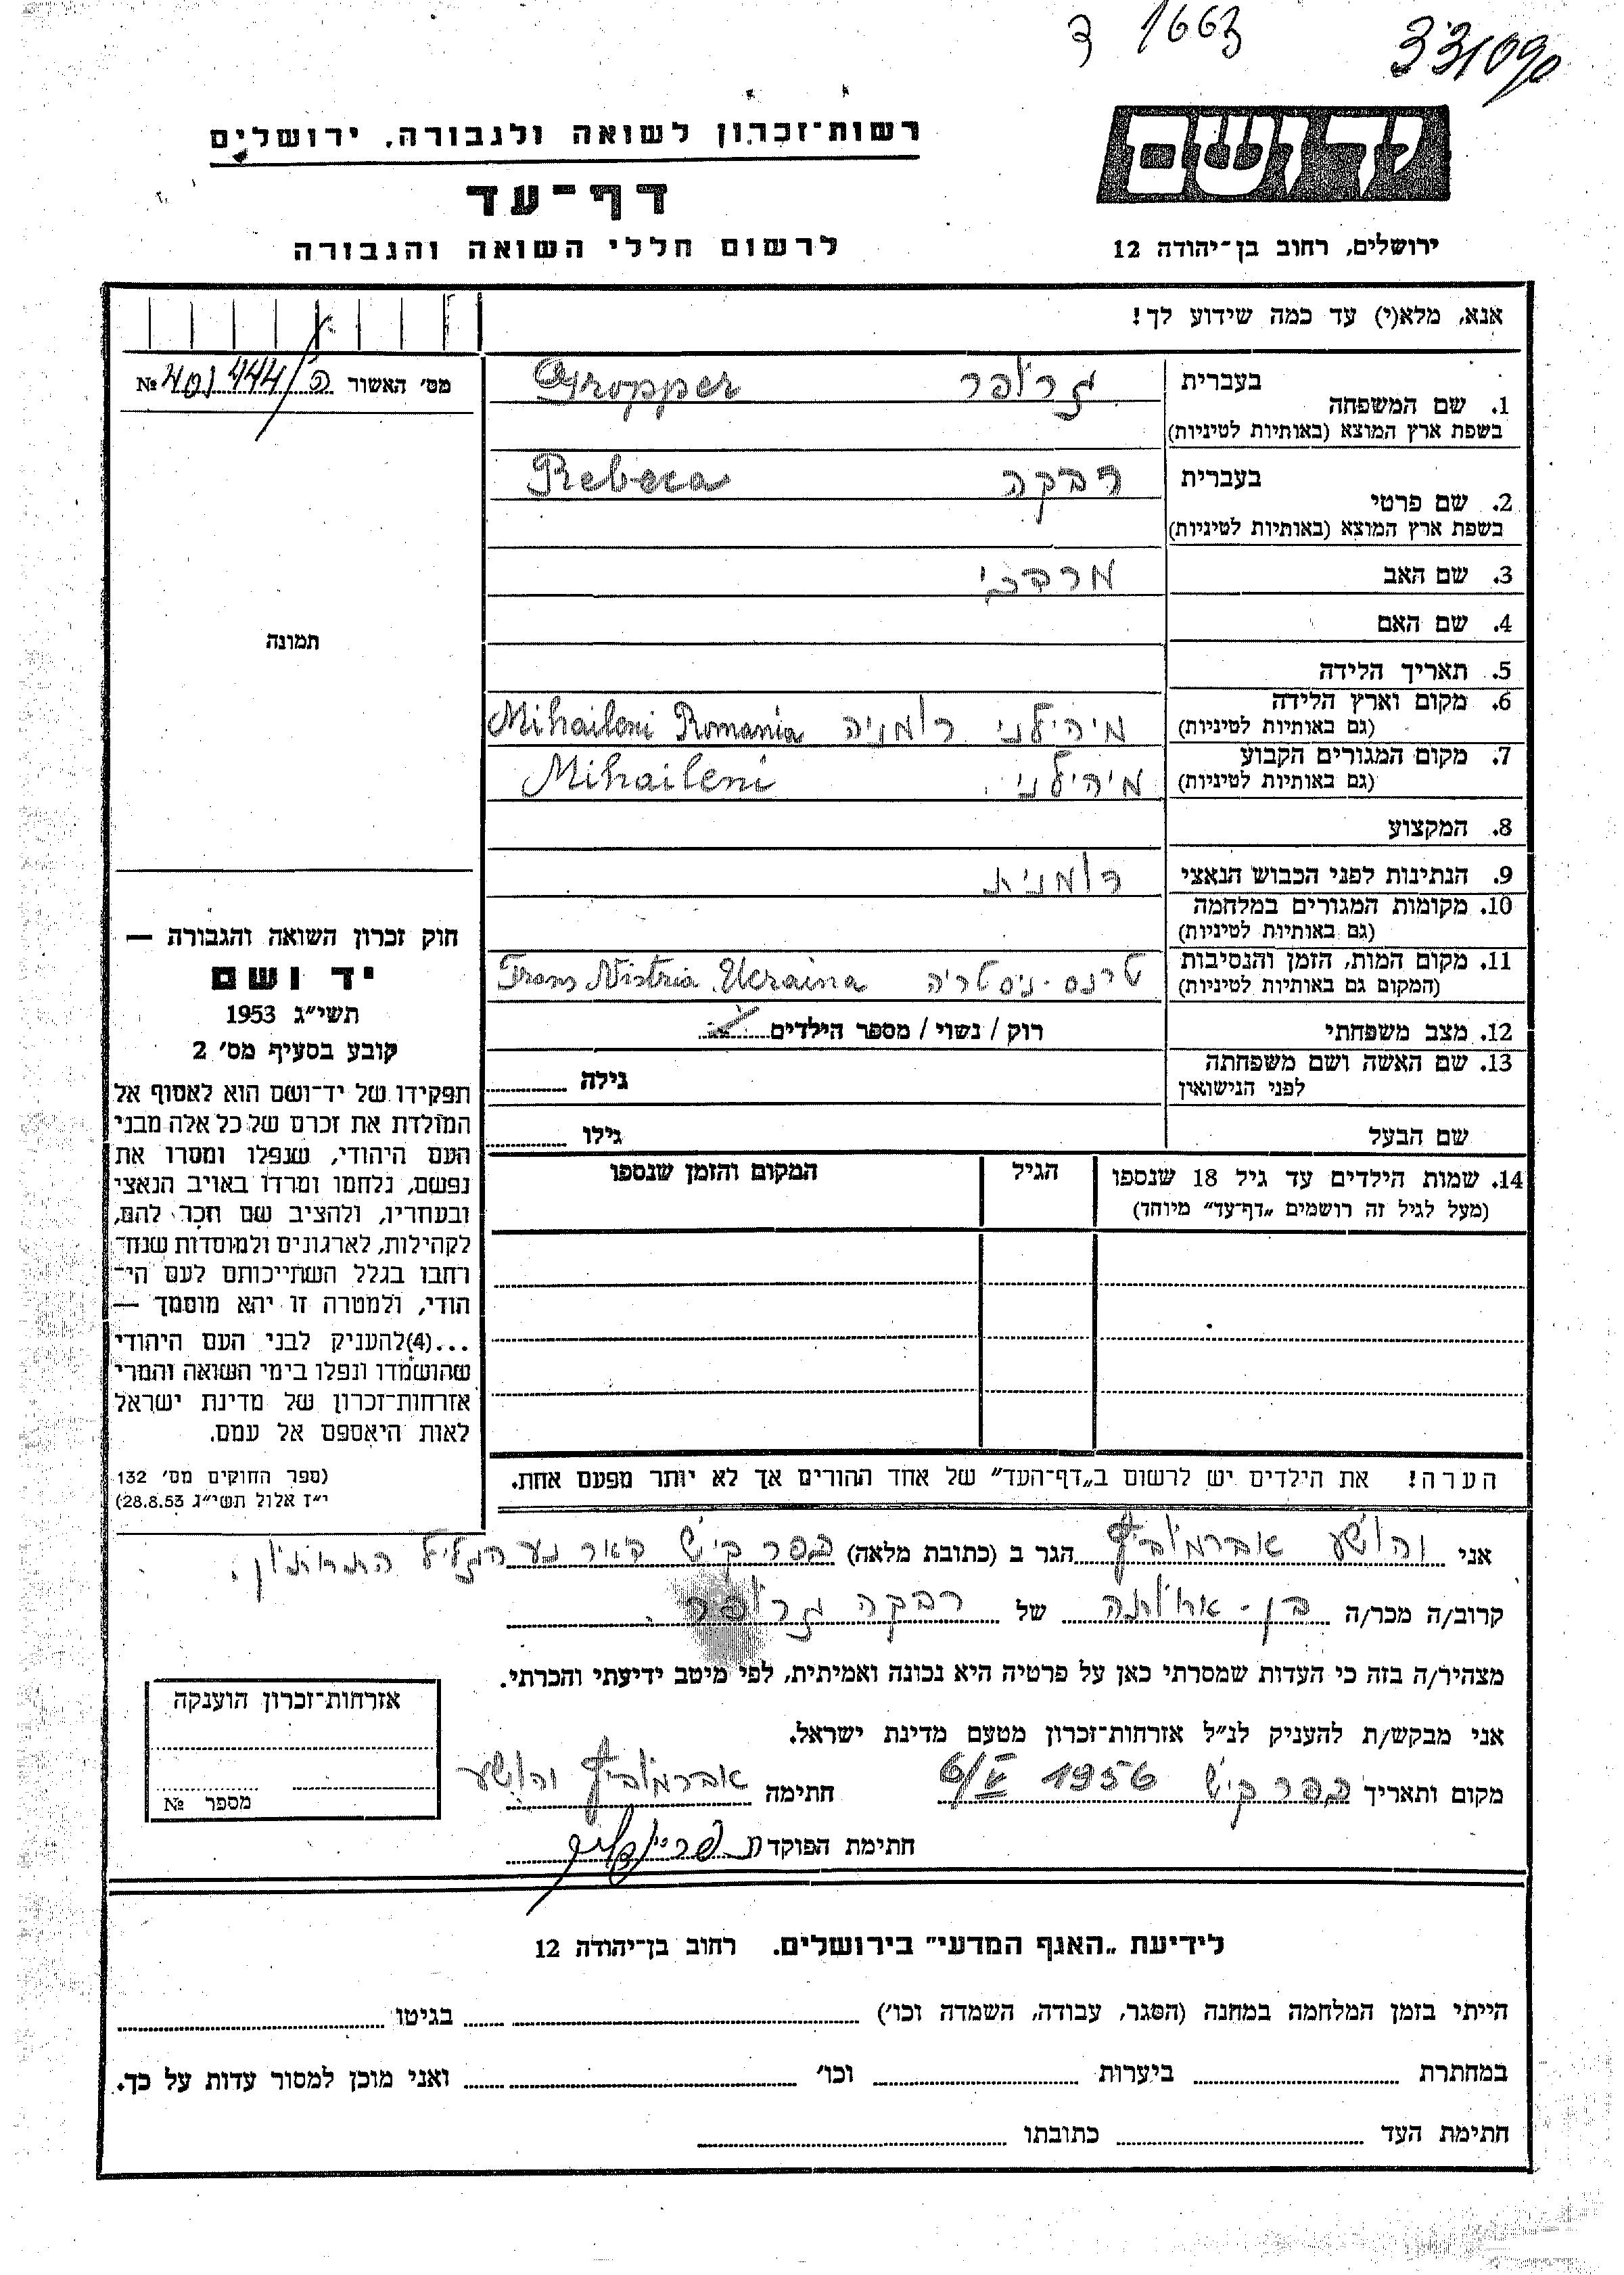 ד 1663 331090
יד ושם
רשות־זכרון לשואה ולגבורה, ירושלים
דף־עד
ירושלים, רחוב בן־יהודה 12
לרשום חללי השואה והגבורה
אנא, מלא(י) עד כמה שידוע לך!
מס׳ האשור
№
1. שם המשפחה
בעברית גרופר Gropper
בשפת ארץ המוצא (באותיות לטיניות)
2. שם פרטי
בעברית רבקה Rebeca
בשפת ארץ המוצא (באותיות לטיניות)
3. שם האב מרדכי
4. שם האם
5. תאריך הלידה
6. מקום וארץ הלידה
(גם באותיות לטיניות) מיהילני רומניה Mihaileni Romania
7. מקום המגורים הקבוע
(גם באותיות לטיניות) מיהילני Mihaileni
8. המקצוע
9. הנתינות לפני הכבוש הנאצי רומנית
10. מקומות המגורים במלחמה
(גם באותיות לטיניות)
11. מקום המות, הזמן והנסיבות
(המקום גם באותיות לטיניות) טרנס-ניסטריה Trans Nistria Ucraina
12. מצב משפחתי רוק / נשוי / מספר הילדים
13. שם האשה ושם משפחתה
לפני הנישואין גילה
שם הבעל גילו
14. שמות הילדים עד גיל 18 שנספו הגיל המקום והזמן שנספו
(מעל לגיל זה רושמים „דף־עד״ מיוחד)
הערה! את הילדים יש לרשום ב„דף־העד״ של אחד ההורים אך לא יותר מפעם אחת.
תמונה
חוק זכרון השואה והגבורה —
יד ושם
תשי״ג 1953
קובע בסעיף מס׳ 2
תפקידו של יד־ושם הוא לאסוף אל
המולדת את זכרם של כל אלה מבני
העם היהודי, שנפלו ומסרו את
נפשם, נלחמו ומרדו באויב הנאצי
ובעוזריו, ולהציב שם וזכר להם,
לקהילות, לארגונים ולמוסדות שנח־
רבו בגלל השתייכותם לעם הי־
הודי, ולמטרה זו יהא מוסמך —
...(4)להעניק לבני העם היהודי
שהושמדו ונפלו בימי השואה והמרי
אזרחות־זכרון של מדינת ישראל
לאות היאספם אל עמם.
(ספר החוקים מס׳ 132
י״ז אלול תשי״ג 28.8.53)
אני יהושע אברמוביץ הגר ב (כתובת מלאה) כפר קיש דאר נע הגליל התחתון.
קרוב/ה מכר/ה בן-אחותה של רבקה גרופר.
מצהיר/ה בזה כי העדות שמסרתי כאן על פרטיה היא נכונה ואמיתית, לפי מיטב ידיעתי והכרתי.
אני מבקש/ת להעניק לנ״ל אזרחות־זכרון מטעם מדינת ישראל.
מקום ותאריך כפר קיש 1956 חתימה אברמוביץ יהושע
חתימת הפוקד
אזרחות־זכרון הוענקה
מספר №
לידיעת „האגף המדעי״ בירושלים. רחוב בן־יהודה 12
הייתי בזמן המלחמה במחנה (הסגר, עבודה, השמדה וכו׳) בגיטו
במחתרת ביערות וכו׳ ואני מוכן למסור עדות על כך.
חתימת העד כתובתו